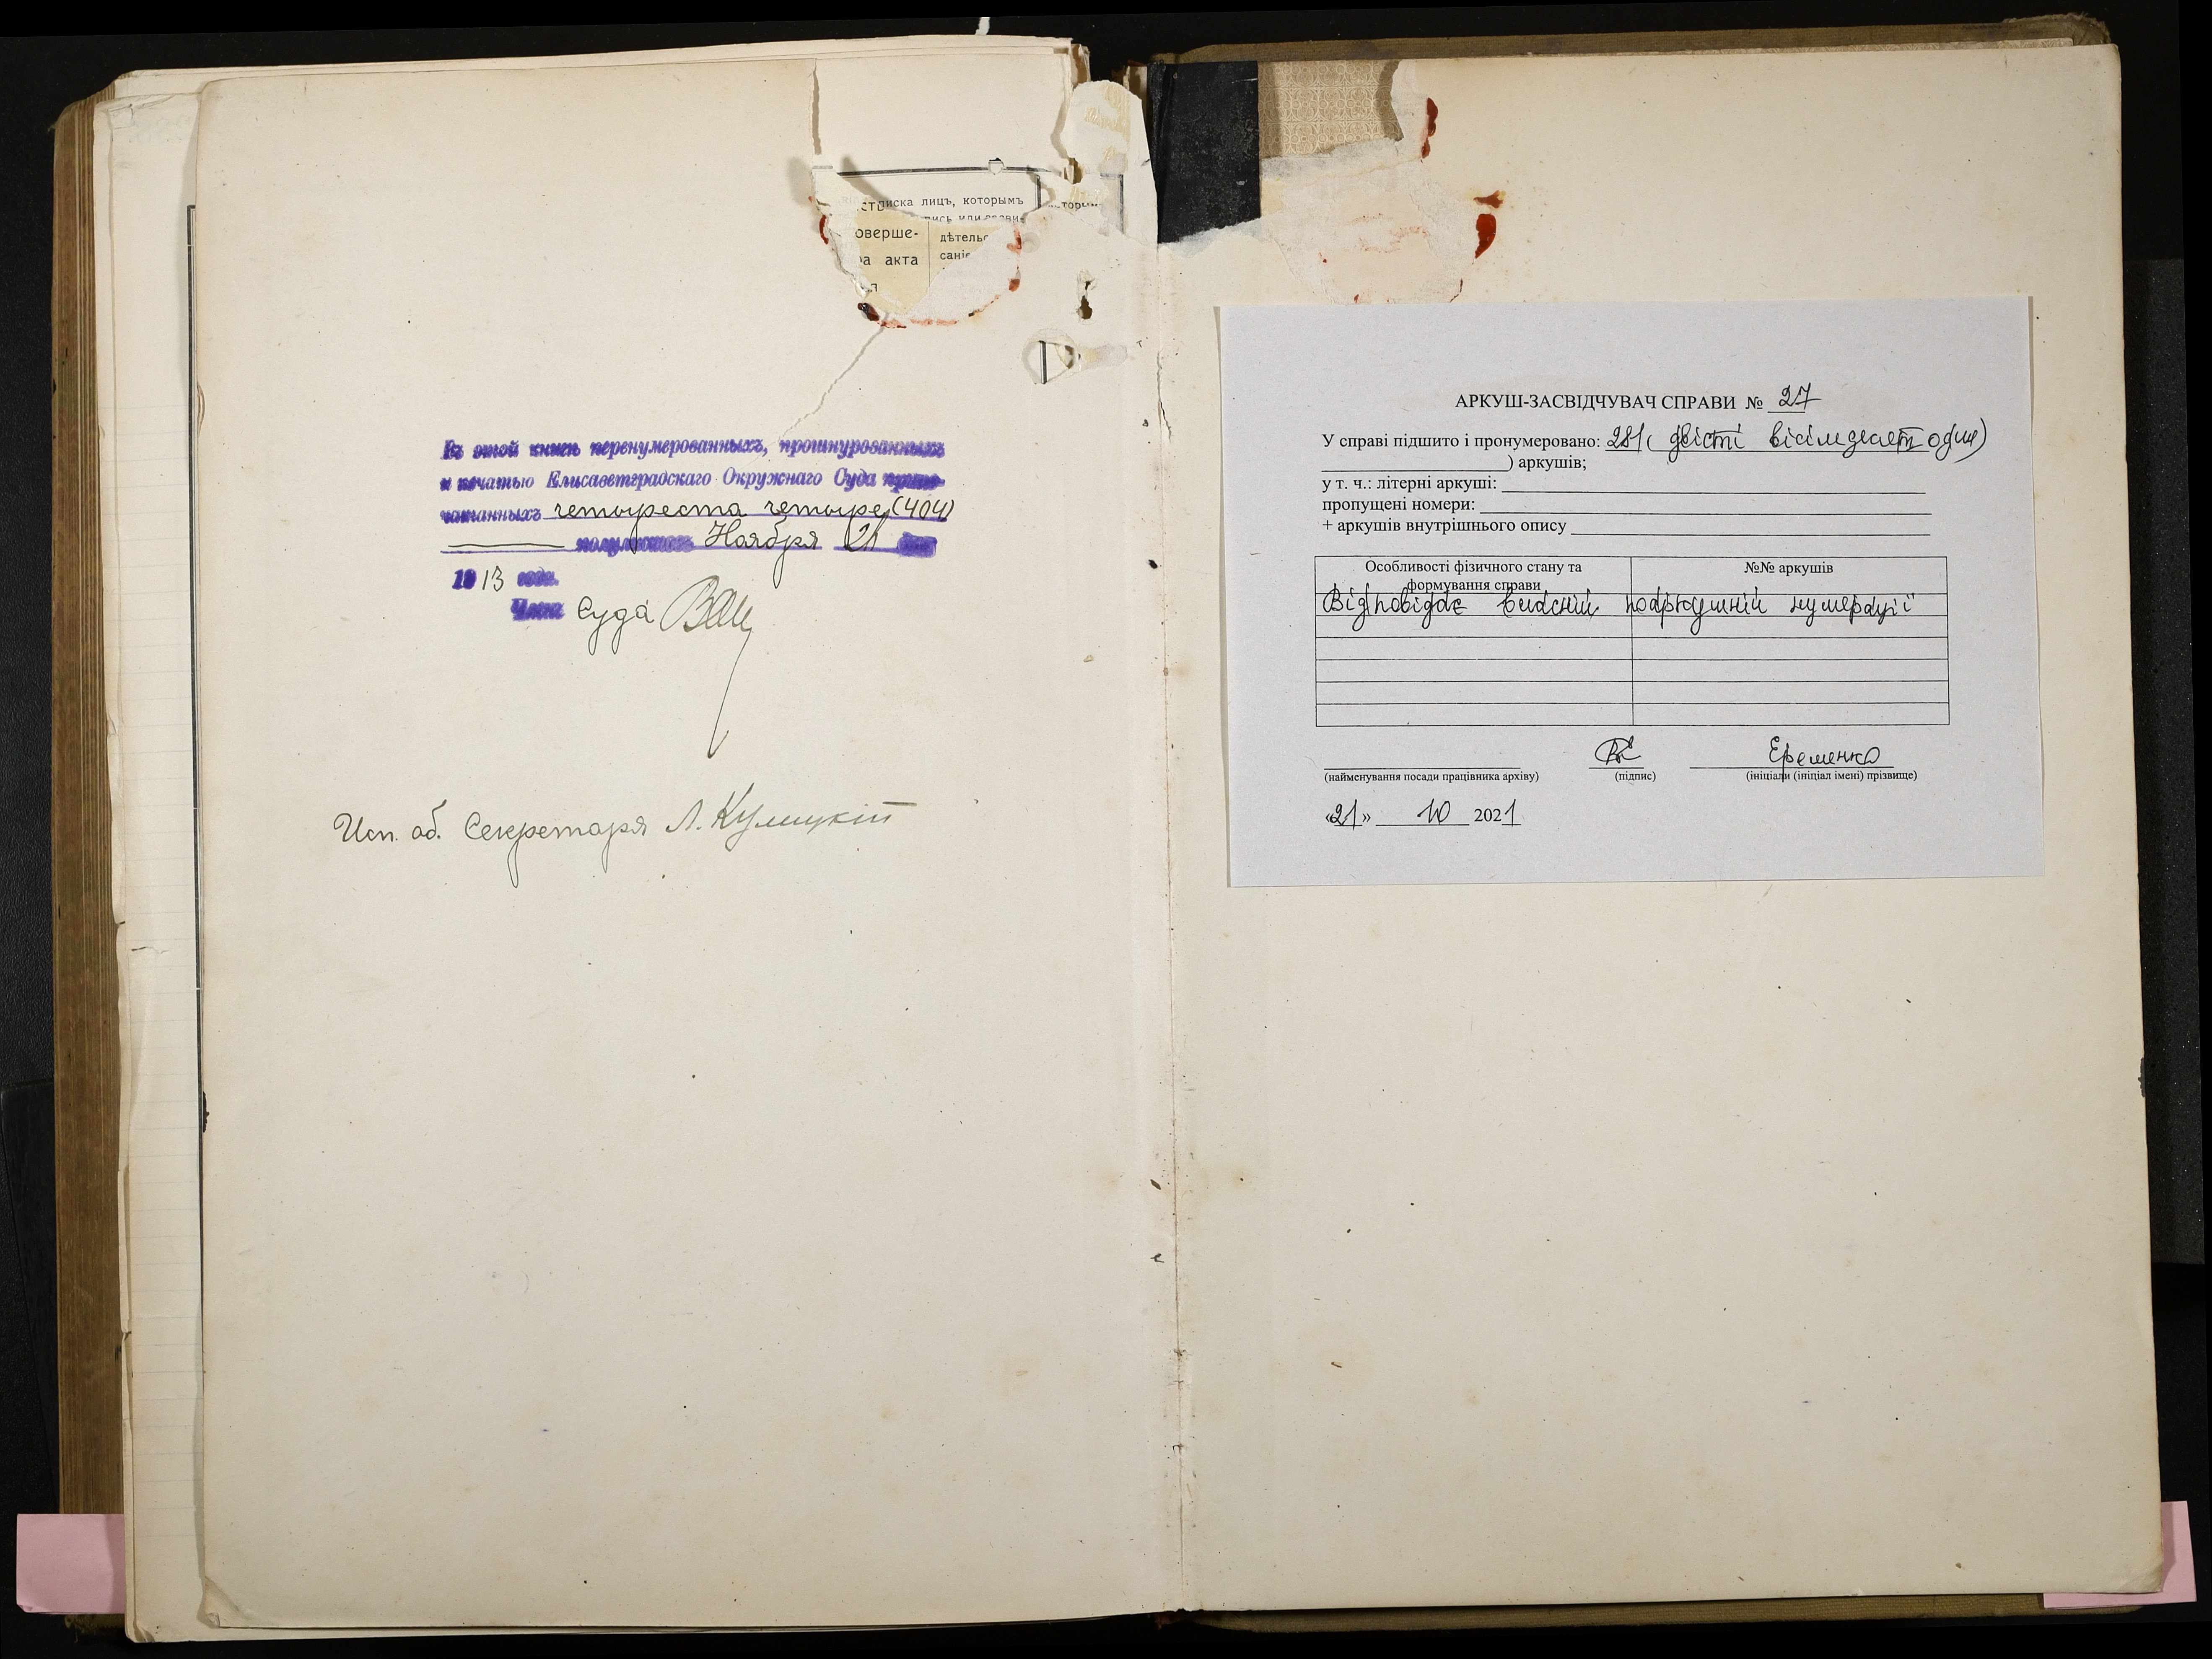 писка лицъ, которымъ
оверше-
дѣтельс
ра акта
саніе
Въ этой книгѣ перенумерованныхъ, прошнурованныхъ
и печатью Елисаветградскаго Окружнаго Суда припе-
чатанныхъ четыреста четыре (404)
полулистовъ Ноября 21 дня
1913 года.
Членъ Суда
Исп. об. Секретаря Л. Кульчицкій
АРКУШ-ЗАСВІДЧУВАЧ СПРАВИ № 27
У справі підшито і пронумеровано: 281 ( двісті вісімдесят один)
) аркушів;
у т. ч.: літерні аркуші:
пропущені номери:
+ аркушів внутрішнього опису
Особливості фізичного стану та формування справи
№№ аркушів
Відповідає власній поаркушній нумерації
Еременко
(найменування посади працівника архіву) (підпис) (ініціали (ініціал імені) прізвище)
«21» 10 2021